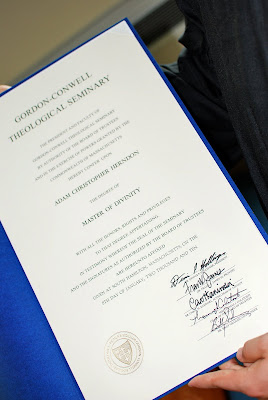 GORDON-CONWELL
THEOLOGICAL SEMINARY
THE PRESIDENT AND FACULTY OF
GORDON-CONWELL THEOLOGICAL SEMINARY
BY AUTHORITY OF THE BOARD OF TRUSTEES
AND IN THE EXERCISE OF POWERS GRANTED BY THE
COMMONWEALTH OF MASSACHUSETTS
HEREBY CONFER UPON
ADAM CHRISTOPHER HERNDON
THE DEGREE OF
MASTER OF DIVINITY
WITH ALL THE HONORS, RIGHTS AND PRIVILEGES
TO THAT DEGREE APPERTAINING
IN TESTIMONY WHEREOF THE SEAL OF THE SEMINARY
AND THE SIGNATURES AS AUTHORIZED BY THE BOARD OF TRUSTEES
ARE HEREUNTO AFFIXED
GIVEN AT SOUTH HAMILTON, MASSACHUSETTS, ON THE
DAY OF JANUARY, TWO THOUSAND AND TEN